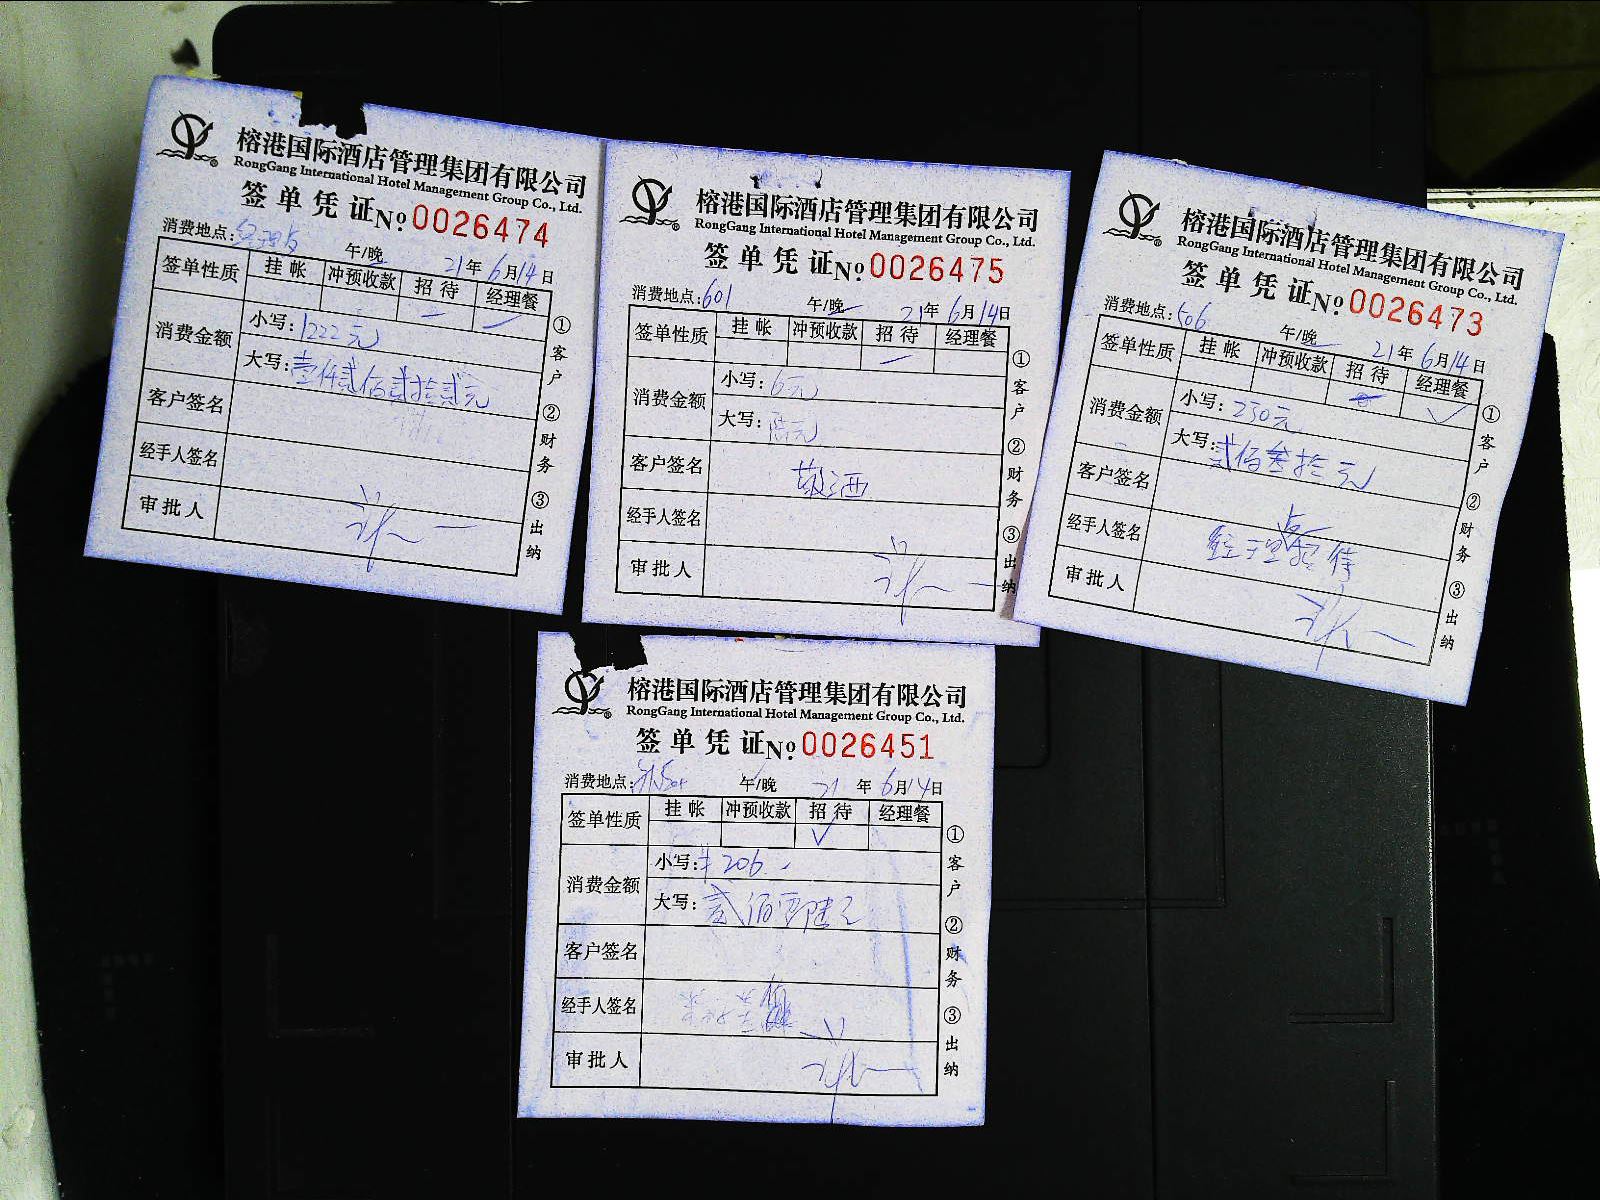 榕港国际酒店管理集团有限公司
RongGang International Hotel Management Group Co., Ltd.
签单凭证 No 0026474
消费地点: 午/晚 21年6月14日
签单性质 挂帐 冲预收款 招待 经理餐
消费金额 小写:1222元
大写:壹仟贰佰贰拾贰元
客户签名
经手人签名
审批人
①客户 ②财务 ③出纳
榕港国际酒店管理集团有限公司
RongGang International Hotel Management Group Co., Ltd.
签单凭证 No 0026475
消费地点:601 午/晚 21年6月14日
签单性质 挂帐 冲预收款 招待 经理餐
消费金额 小写:6元
大写:陆元
客户签名 敬酒
经手人签名
审批人
①客户 ②财务 ③出纳
榕港国际酒店管理集团有限公司
RongGang International Hotel Management Group Co., Ltd.
签单凭证 No 0026473
消费地点:506 午/晚 21年6月14日
签单性质 挂帐 冲预收款 招待 经理餐
消费金额 小写:230元
大写:贰佰叁拾元
客户签名
经手人签名 经理招待
审批人
①客户 ②财务 ③出纳
榕港国际酒店管理集团有限公司
RongGang International Hotel Management Group Co., Ltd.
签单凭证 No 0026451
消费地点: 午/晚 21年6月14日
签单性质 挂帐 冲预收款 招待 经理餐
消费金额 小写:¥206.
大写:贰佰零陆元
客户签名
经手人签名
审批人
①客户 ②财务 ③出纳